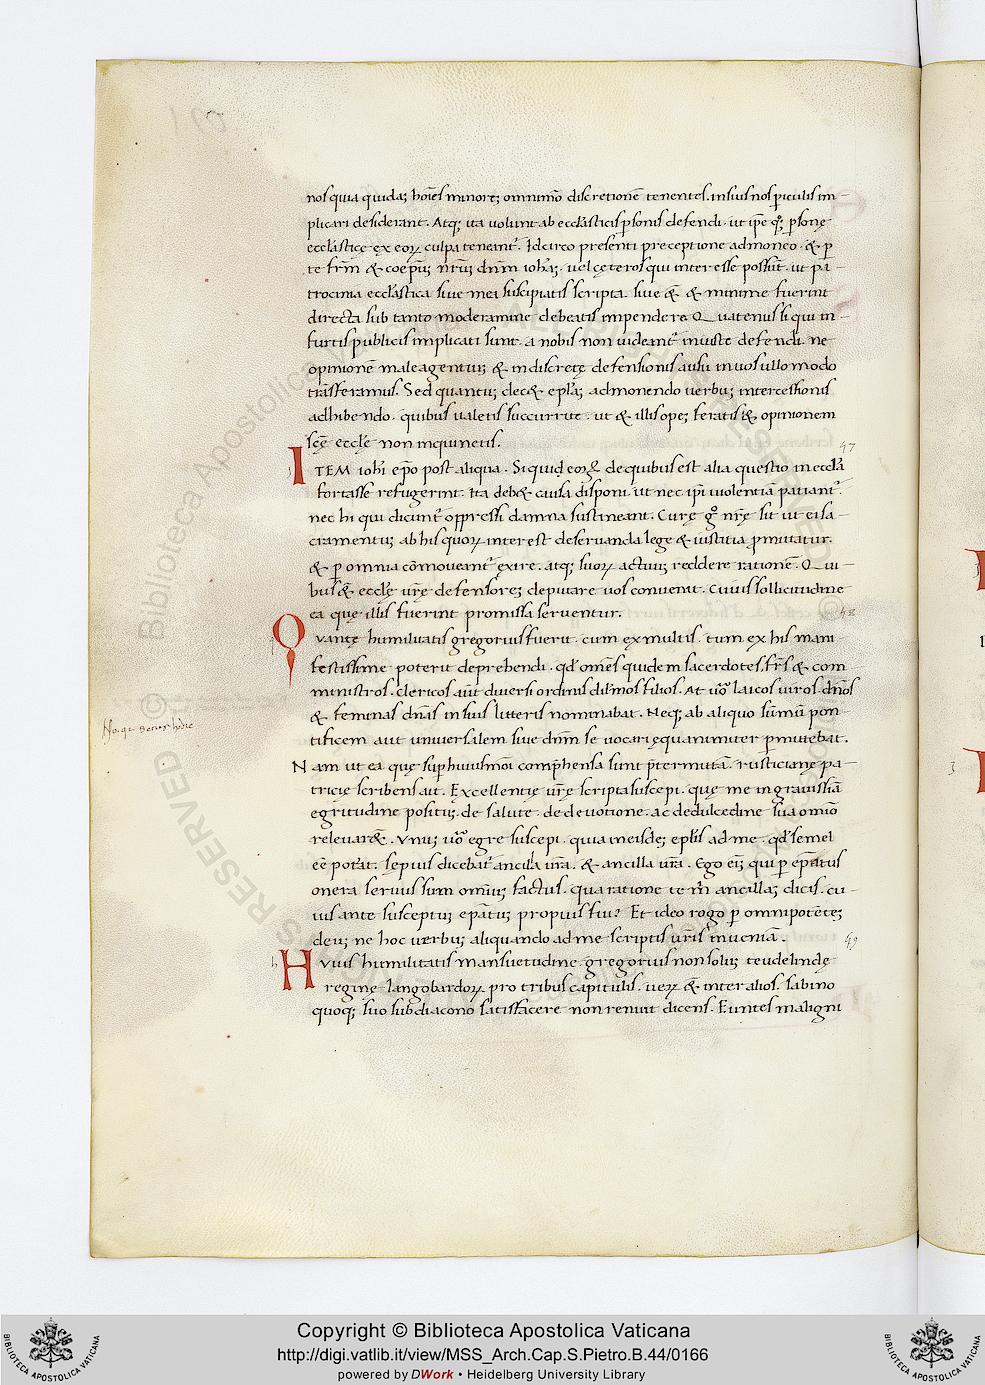 nos quia quidaʒ hoi͞es minoreʒ omnimo discretione͞ tenentes. in suis nos p̱iculis im
plicari desiderant. Atqꝫ ita uolunt ab eccl͞asticis p̱sonis defendi. ut ip͞e qꝫ p̱sonę
eccl͞asticę ex eoꝝ culpa teneant᷑. Idcirco presenti preceptione admoneo. & p̱
te fr͞m & coep͞m n͞rm dn͞m ioh͞m. uel cęteros qui interesse possu͞t. ut pa-
trocinia eccl͞astica siue mea suscipiatis scripta. siue & & minime fuerint
directa sub tanto moderamine debeatis impendere. Quatenus si qui in-
furtis publicis implicati sunt. a nobis non uideant᷑ iniuste defendi. ne
opinione͞ male agentiu͞ & indiscretę defensionis ausu in uos ullo modo
tra͞sferamus. Sed quantu͞ dec& eccl͞am admonendo uerbu͞ intercessionis
adhibendo. quibus ualetis succurrite. ut & illis opeʒ feratis & opinionem
sc͞ę eccl͞ę non inquinetis.
47
ITEM ioh͞i ep͞o post aliqua. Si quideʒ de quibus est alia questio in eccl͞a
fortasse refugerint. Ita deb& causa disponi. ut nec ip͞i uiolentia͞ patiant᷑.
nec hi qui dicunt᷑ oppressi damna sustineant. Curę g͞o n͞rę sit ut ei sa-
cramentis ab his quoꝝ interest de seruanda lege & iustitia p̱mittatur.
& p̱ omnia co͞moueant᷑ exire. atqꝫ suoꝝ actuu͞ reddere ratione͞. Qui-
bus & eccl͞ę u͞rę defensoreʒ deputare uos conuenit. Cuius sollicitudine
ea quę illis fuerint promissa seruentur.
48
Quantę humilitatis gregorius fuerit. cum ex multis. tum ex his mani-
festissime poterit deprehendi. qd͞ om͞es quidem sacerdotes. fr͞s & com-
ministros. Clericos aut͞ diuersi ordinis dil͞mos filios. At u͞o laicos uiros. dn͞os
& feminas dn͞as in suis litteris nominabat. Neqꝫ ab aliquo su͞mu͞ pon-
tificem aut uniuersalem siue dn͞m se uocari ęquanimiter p̱mittebat.
No. qr seruus hodie
Nam ut ea quę sup̱ huiusmo͞i comp͞hensa sunt p͞termitta͞. rusticianę pa-
tricię scribens ait. Excellentię u͞rę scripta suscepi. quę me in grauissi͞a
egritudine positu͞. de salute. de deuotione. ac de dulcedine sua omi͞o
releuar&. Vnu͞ u͞o egre suscepi. quia in eisdeʒ ep͞lis ad me. qd͞ semel
e͞e poterat. sępius dicebat᷑ ancilla u͞ra. & ancilla u͞ra. Ego eni͞ qui p̱ ep͞atus
onera seruus sum omniu͞ factus. qua ratione te m͞ ancilla͞ dicis. cu-
ius ante susceptu͞ ep͞atu͞ propius fui? Et ideo rogo p̱ omnipotente͞
deu͞. ne hoc uerbu͞ aliquando ad me scriptis u͞ris inuenia͞.
49
Huius humilitatis mansuetudine gregorius non solu͞ teudelindę
reginę langobardoꝝ pro tribus capitulis. ueꝝ & inter alios. sabino
quoqꝫ suo subdiacono satisfacere non renuit dicens. Euntes maligni
3
Copyright © Biblioteca Apostolica Vaticana
http://digi.vatlib.it/view/MSS_Arch.Cap.S.Pietro.B.44/0166
powered by DWork • Heidelberg University Library